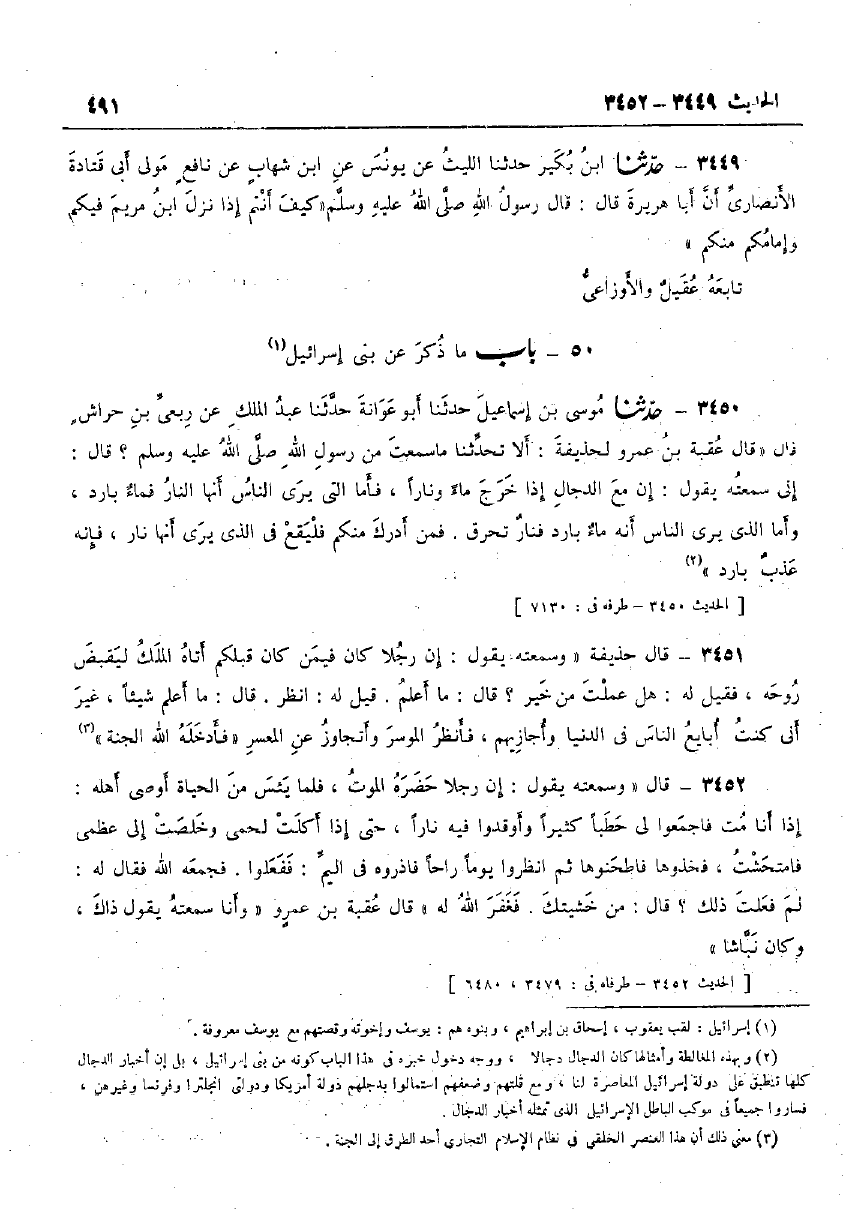 الحديث ٣٤٤٩ – ٣٤٥٢
٤٩١
٣٤٤٩ – حدّثنا ابنُ بُكَير حدثنا الليثُ عن يونُسَ عنِ ابن شهابٍ عن نافعٍ مَولى أبى قَتادةَ
الأنصارىِّ أنَّ أبا هريرةَ قال : قال رسولُ اللهِ صلَّى اللهُ عليهِ وسلَّم«كيفَ أنْتم إذا نزلَ ابنُ مريمَ فيكم
وإمامُكم منكم »
تابعَهُ عُقَيلٌ والأَوزاعىُّ
٥٠ – باب ما ذُكرَ عن بنى إسرائيل(١)
٣٤٥٠ – حدّثنا مُوسى بن إسماعيلَ حدثنا أبو عَوانةَ حدَّثَنا عبدُ الملكِ عن رِبعىِّ بنِ حراشٍ
قال «قال عُقبة بنُ عمرو لحذيفةَ : ألا تحدِّثنا ماسمعتَ من رسولِ اللهِ صلَّى اللهُ عليه وسلم ؟ قال :
إنى سمعتُه يقول : إن معَ الدجالِ إذا خَرَجَ ماءً وناراً ، فأما التى يرَى الناسُ أنها النارُ فماءٌ بارد ،
وأما الذى يرى الناس أنه ماءٌ بارد فنارٌ تحرق . فمن أدركَ منكم فلْيَقعْ فى الذى يرَى أنها نار ، فإنه
عَذبٌ بارد »(٢)
[ الحديث ٣٤٥٠ – طرفه فى : ٧١٣٠ ]
٣٤٥١ – قال حذيفة « وسمعته يقول : إن رجُلا كان فيمَن كان قبلكم أتاهُ الملَكُ ليَقبضَ
رُوحَه ، فقيل له : هل عملْتَ من خَير ؟ قال : ما أعلمُ . قيل له : انظر . قال : ما أعلم شيئاً ، غيرَ
أنى كنتُ أُبايعُ الناسَ فى الدنيا وأُجازِيهم ، فأُنظرُ الموسرَ وأتجاوزُ عنِ المعسر «فأدخَلَهُ الله الجنة »(٣)
٣٤٥٢ – قال « وسمعته يقول : إن رجلا حَضَرَهُ الموتُ ، فلما يَئسَ منَ الحياة أوصى أهله :
إذا أنا مُت فاجمَعوا لى حَطَباً كثيراً وأوقدوا فيه ناراً ، حتى إذا أكلَتْ لحمى وخلصَتْ إلى عظمى
فامتحَشْتُ ، فخذوها فاطحَنوها ثم انظروا يوماً راحاً فاذروه فى اليمِّ : ففَعلوا . فجمعَه الله فقال له :
لمَ فعلتَ ذلك ؟ قال : من خَشيتكَ . فَغَفَرَ اللهُ له » قال عُقبة بن عمرٍو « وأنا سمعتهُ يقول ذاكَ ،
وكان نَبَّاشا »
[ الحديث ٣٤٥٢ – طرفاه فى : ٣٤٧٩ ، ٦٤٨٠ ]
(١) إسرائيل : لقب يعقوب ، إسحاق بن إبراهيم ، وبنوه هم : يوسف وإخوته وقصتهم مع يوسف معروفة .
(٢) وبهذه المغالطة وأمثالها كان الدجال دجالا ، ووجه دخول خبره فى هذا الباب كونه من بنى إسرائيل ، بل إن أخبار الدجال
كلها تنطبق على دولة إسرائيل المعاصرة لنا ، ومع قلتهم وضعفهم استمالوا بدجلهم دولة أمريكا ودولتى انجلترا وفرنسا وغيرهن ،
فساروا جميعاً فى موكب الباطل الإسرائيلى الذى تمثله أخبار الدجال .
(٣) معنى ذلك أن هذا العنصر الخلقى فى نظام الإسلام التجارى أحد الطرق إلى الجنة .